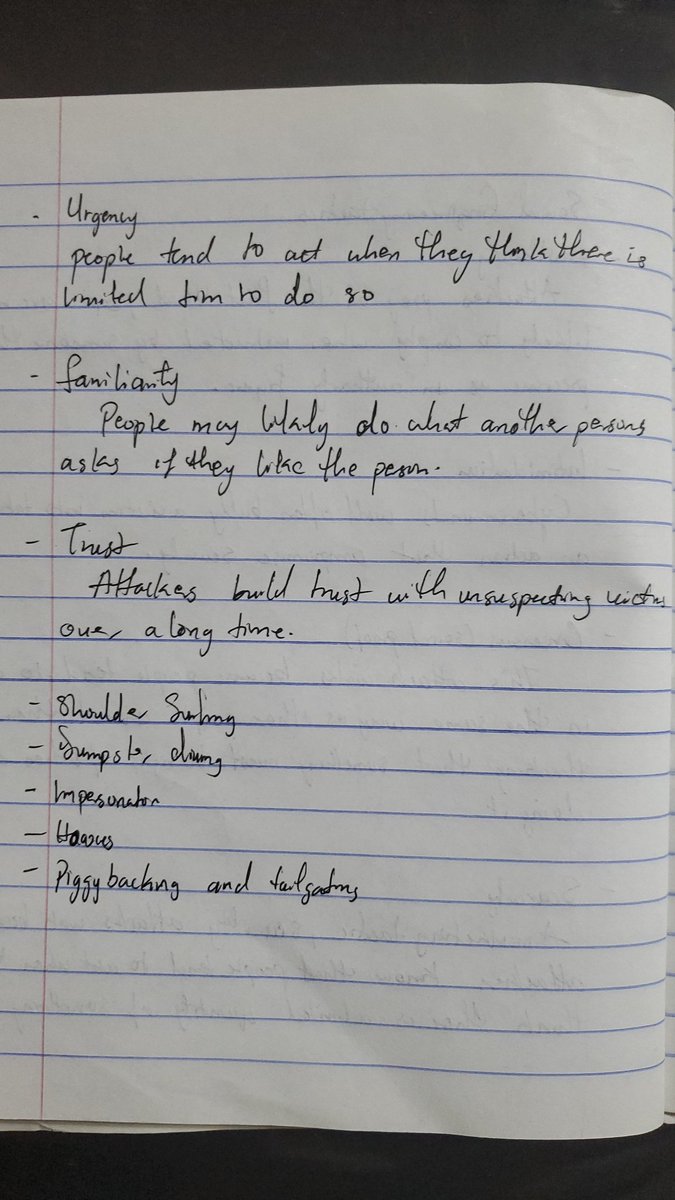 - Urgency
people tend to act when they think there is
limited tim to do so
- familiarity
People may likely do what another persons
asks if they like the person.
- Trust
Attackers build trust with unsuspecting victims
over a long time.
- Shoulder Surfing
- Dumpster diving
- Impersonation
- Hoaxes
- Piggybacking and tailgating